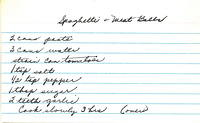 Spaghetti - Meat Balls
2 cans paste
3 cans water
strain can tomatoes
1 tsp salt
1/2 tsp pepper
1 tbsp sugar
2 teeth garlic
Cook slowly 3 hrs Cover